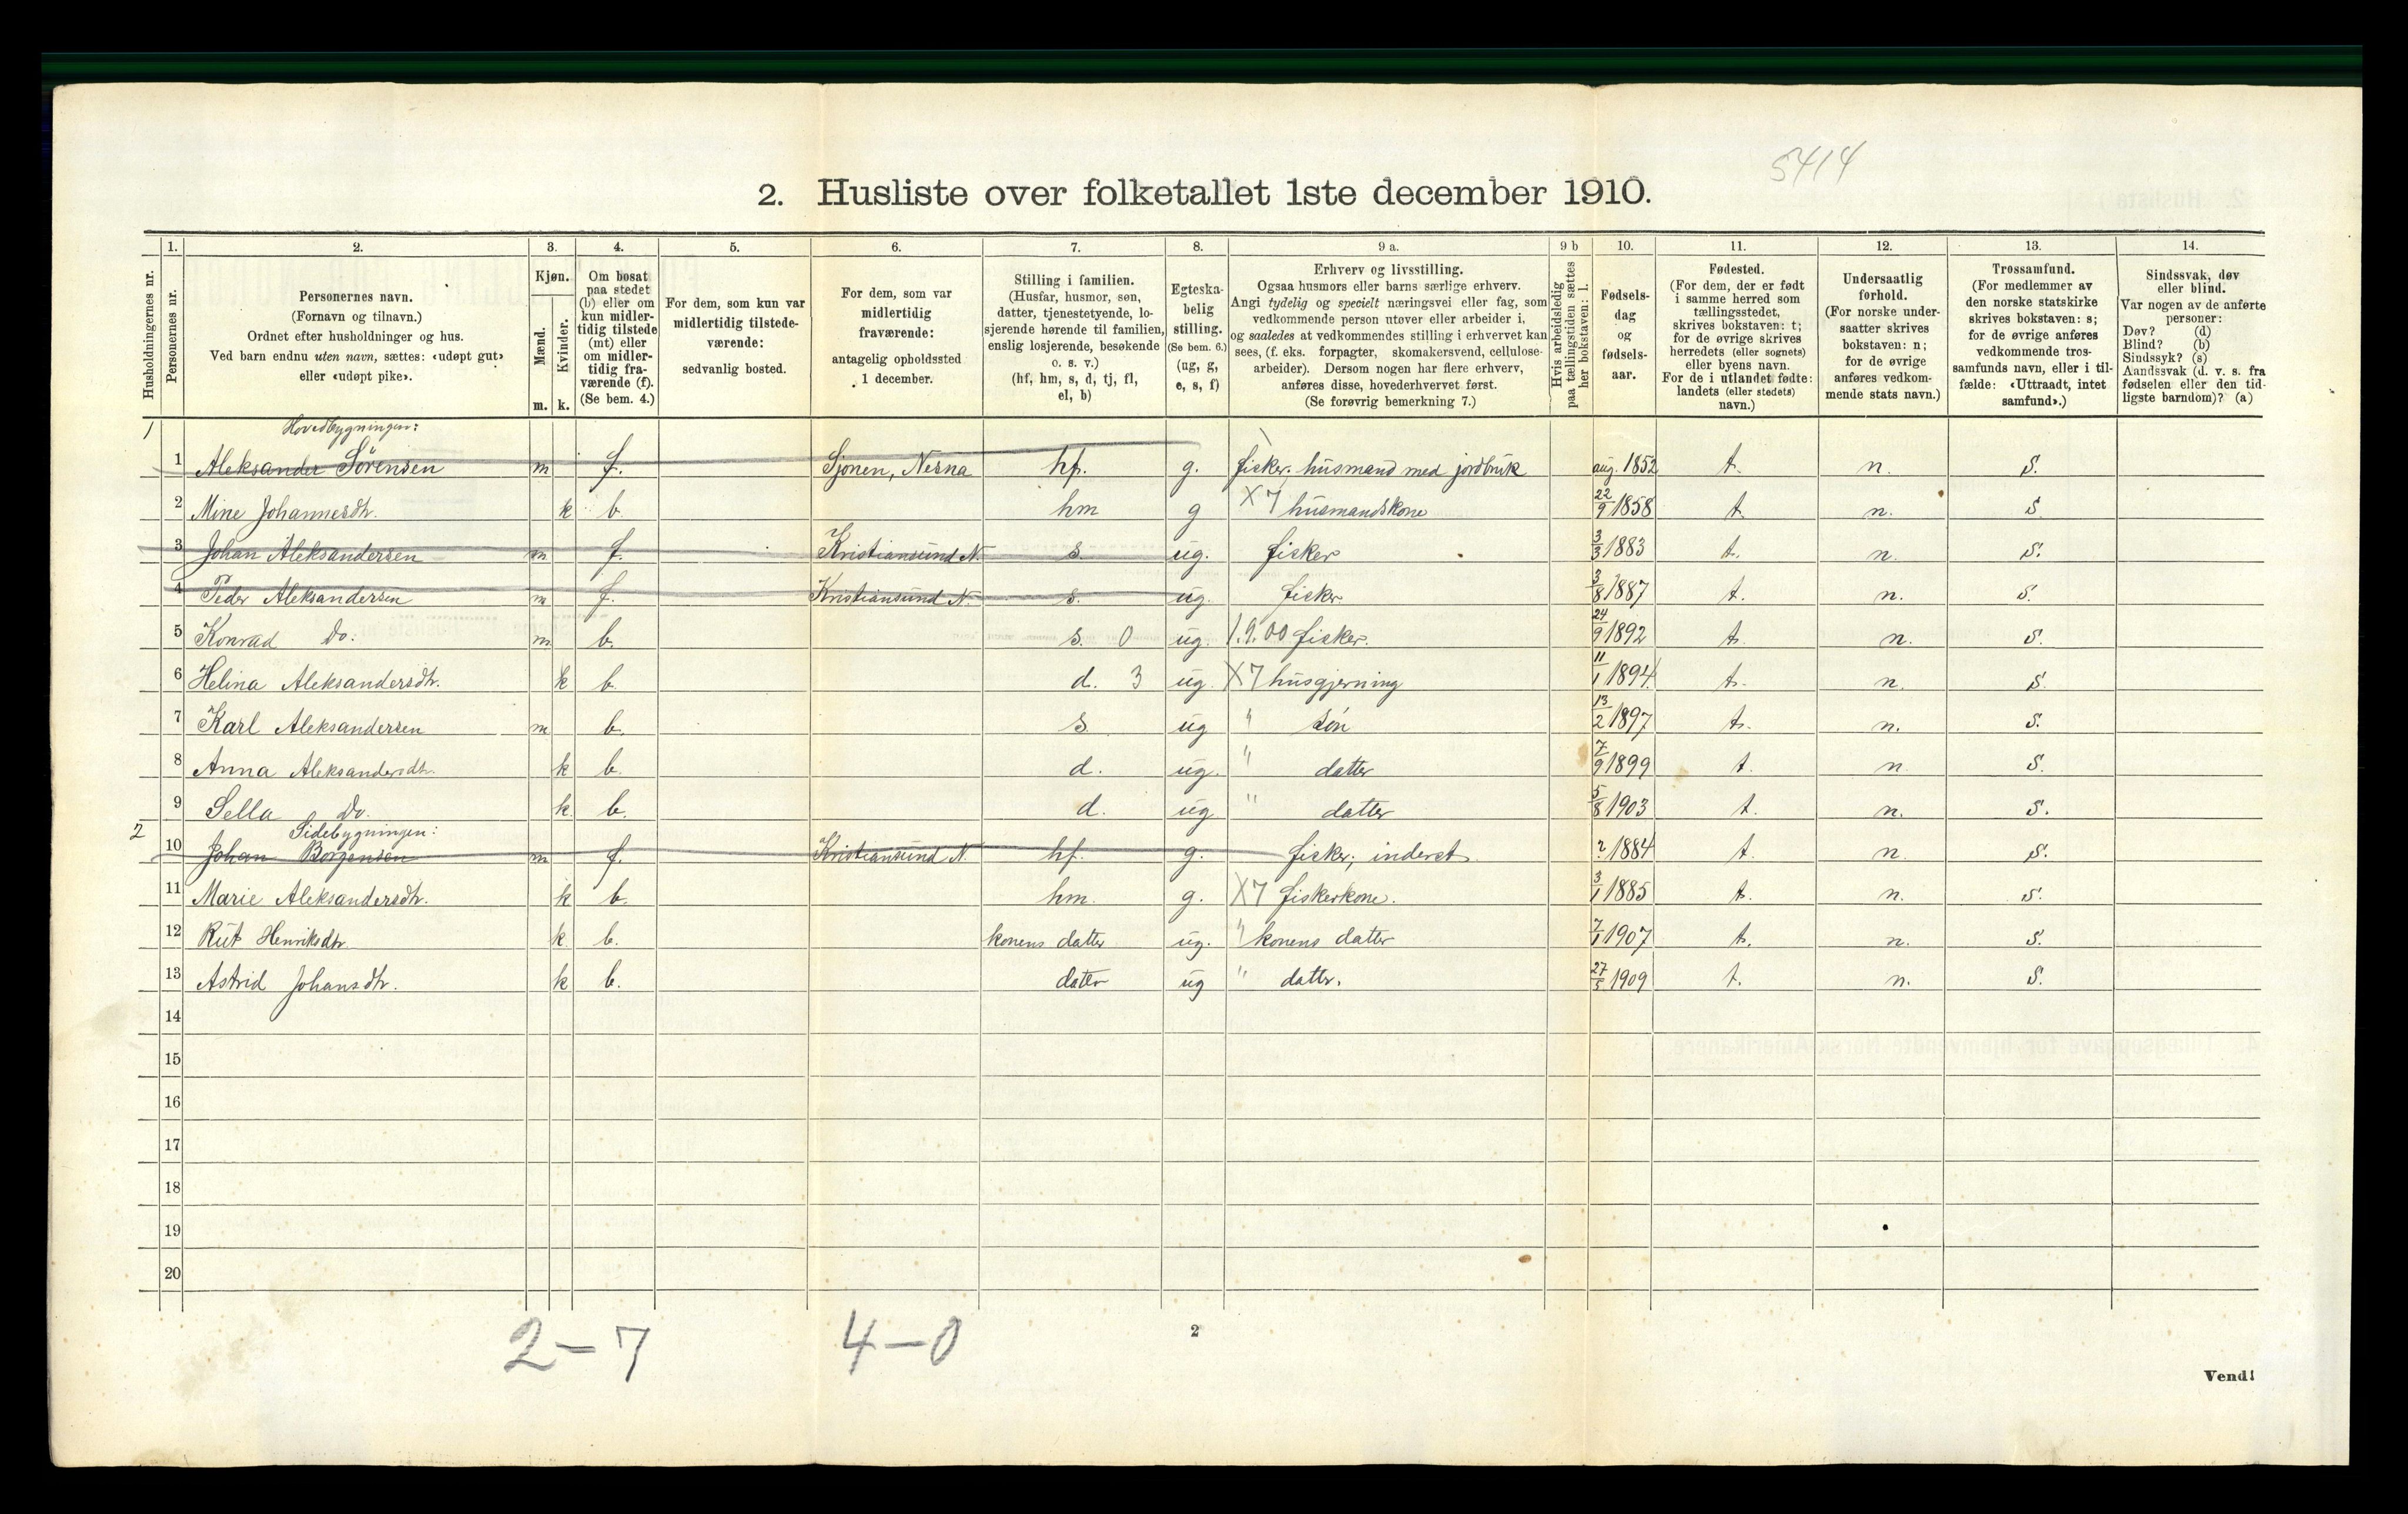 5414
2. Husliste over folketallet 1ste december 1910.
Husholdningernes nr.
1.
Personernes nr.
2.
Personernes navn.
(Fornavn og tilnavn.)
Ordnet efter husholdninger og hus.
Ved barn endnu uten navn, sættes: «udøpt gut»
eller «udøpt pike».
3.
Kjøn.
Mænd.
Kvinder.
m. k.
4.
Om bosat
paa stedet
(b) eller om
kun midler-
tidig tilstede
(mt) eller
om midler-
tidig fra-
værende (f).
(Se bem. 4.)
5.
For dem, som kun var
midlertidig tilstede-
værende:
sedvanlig bosted.
6.
For dem, som var
midlertidig
fraværende:
antagelig opholdssted
1 december.
7.
Stilling i familien.
(Husfar, husmor, søn,
datter, tjenestetyende, lo-
sjerende hørende til familien,
enslig losjerende, besøkende
o. s. v.)
(hf, hm, s, d, tj, fl,
el, b)
8.
Egteska-
belig
stilling.
(Se bem. 6.)
(ug, g,
e, s, f)
9 a.
Erhverv og livsstilling.
Ogsaa husmors eller barns særlige erhverv.
Angi tydelig og specielt næringsvei eller fag, som
vedkommende person utøver eller arbeider i,
og saaledes at vedkommendes stilling i erhvervet kan
sees, (f. eks. forpagter, skomakersvend, cellulose-
arbeider). Dersom nogen har flere erhverv,
anføres disse, hovederhvervet først.
(Se forøvrig bemerkning 7.)
9 b
Hvis arbeidsledig
paa tællingstiden sættes
her bokstaven: l.
10.
Fødsels-
dag
og
fødsels-
aar.
11.
Fødested.
(For dem, der er født
i samme herred som
tællingsstedet,
skrives bokstaven: t;
for de øvrige skrives
herredets (eller sognets)
eller byens navn.
For de i utlandet fødte:
landets (eller stedets)
navn.)
12.
Undersaatlig
forhold.
(For norske under-
saatter skrives
bokstaven: n;
for de øvrige
anføres vedkom-
mende stats navn.)
13.
Trossamfund.
(For medlemmer av
den norske statskirke
skrives bokstaven: s;
for de øvrige anføres
vedkommende tros-
samfunds navn, eller i til-
fælde: «Uttraadt, intet
samfund».)
14.
Sindssvak, døv
eller blind.
Var nogen av de anførte
personer:
Døv? (d)
Blind? (b)
Sindssyk? (s)
Aandssvak (d. v. s. fra
fødselen eller den tid-
ligste barndom)? (a)
1 Hovedbygningen:
1 Aleksander Sörensen m f. Sjonen, Nesna hf. g. fisker, husmand med jordbruk aug. 1852 t. n. s.
2 Mine Johannesdtr. k b. hm g X7 husmandskone 22/9 1858 t. n. s.
3 Johan Aleksandersen m f. Kristiansund N. s. ug. fisker 3/3 1883 t. n. s.
4 Peder Aleksandersen m f. Kristiansund N. s. ug. fisker. 3/8 1887 t. n. s.
5 Konrad Do. m b. s. 0 ug. 1.9.00 fisker. 24/9 1892 t. n. s.
6 Helina Aleksandersdtr. k b. d. 3 ug. X7 husgjerning 11/1 1894. t. n. s.
7 Karl Aleksandersen m b. s. ug " søn 13/2 1897 t. n. s.
8 Anna Aleksandersdtr. k b. d. ug. " datter 7/9 1899 t. n. s.
9 Sella Do. k b. d. ug " datter 5/8 1903 t. n. s.
2 Sidebygningen:
10 Johan Borgensen m f. Kristiansund N. hf. g. fisker; inderst ? 1884 t. n. s.
11 Marie Aleksandersdtr. k b. hm. g. X7 fiskerkone. 3/1 1885 t. n. s.
12 Rut Henriksdtr k b. konens datter ug. " konens datter 7/1 1907 t. n. s.
13 Astrid Johansdtr. k b. datter ug " datter. 27/5 1909 t. n. s.
14
15
16
17
18
19
20
2-7 4-0
2
Vend!